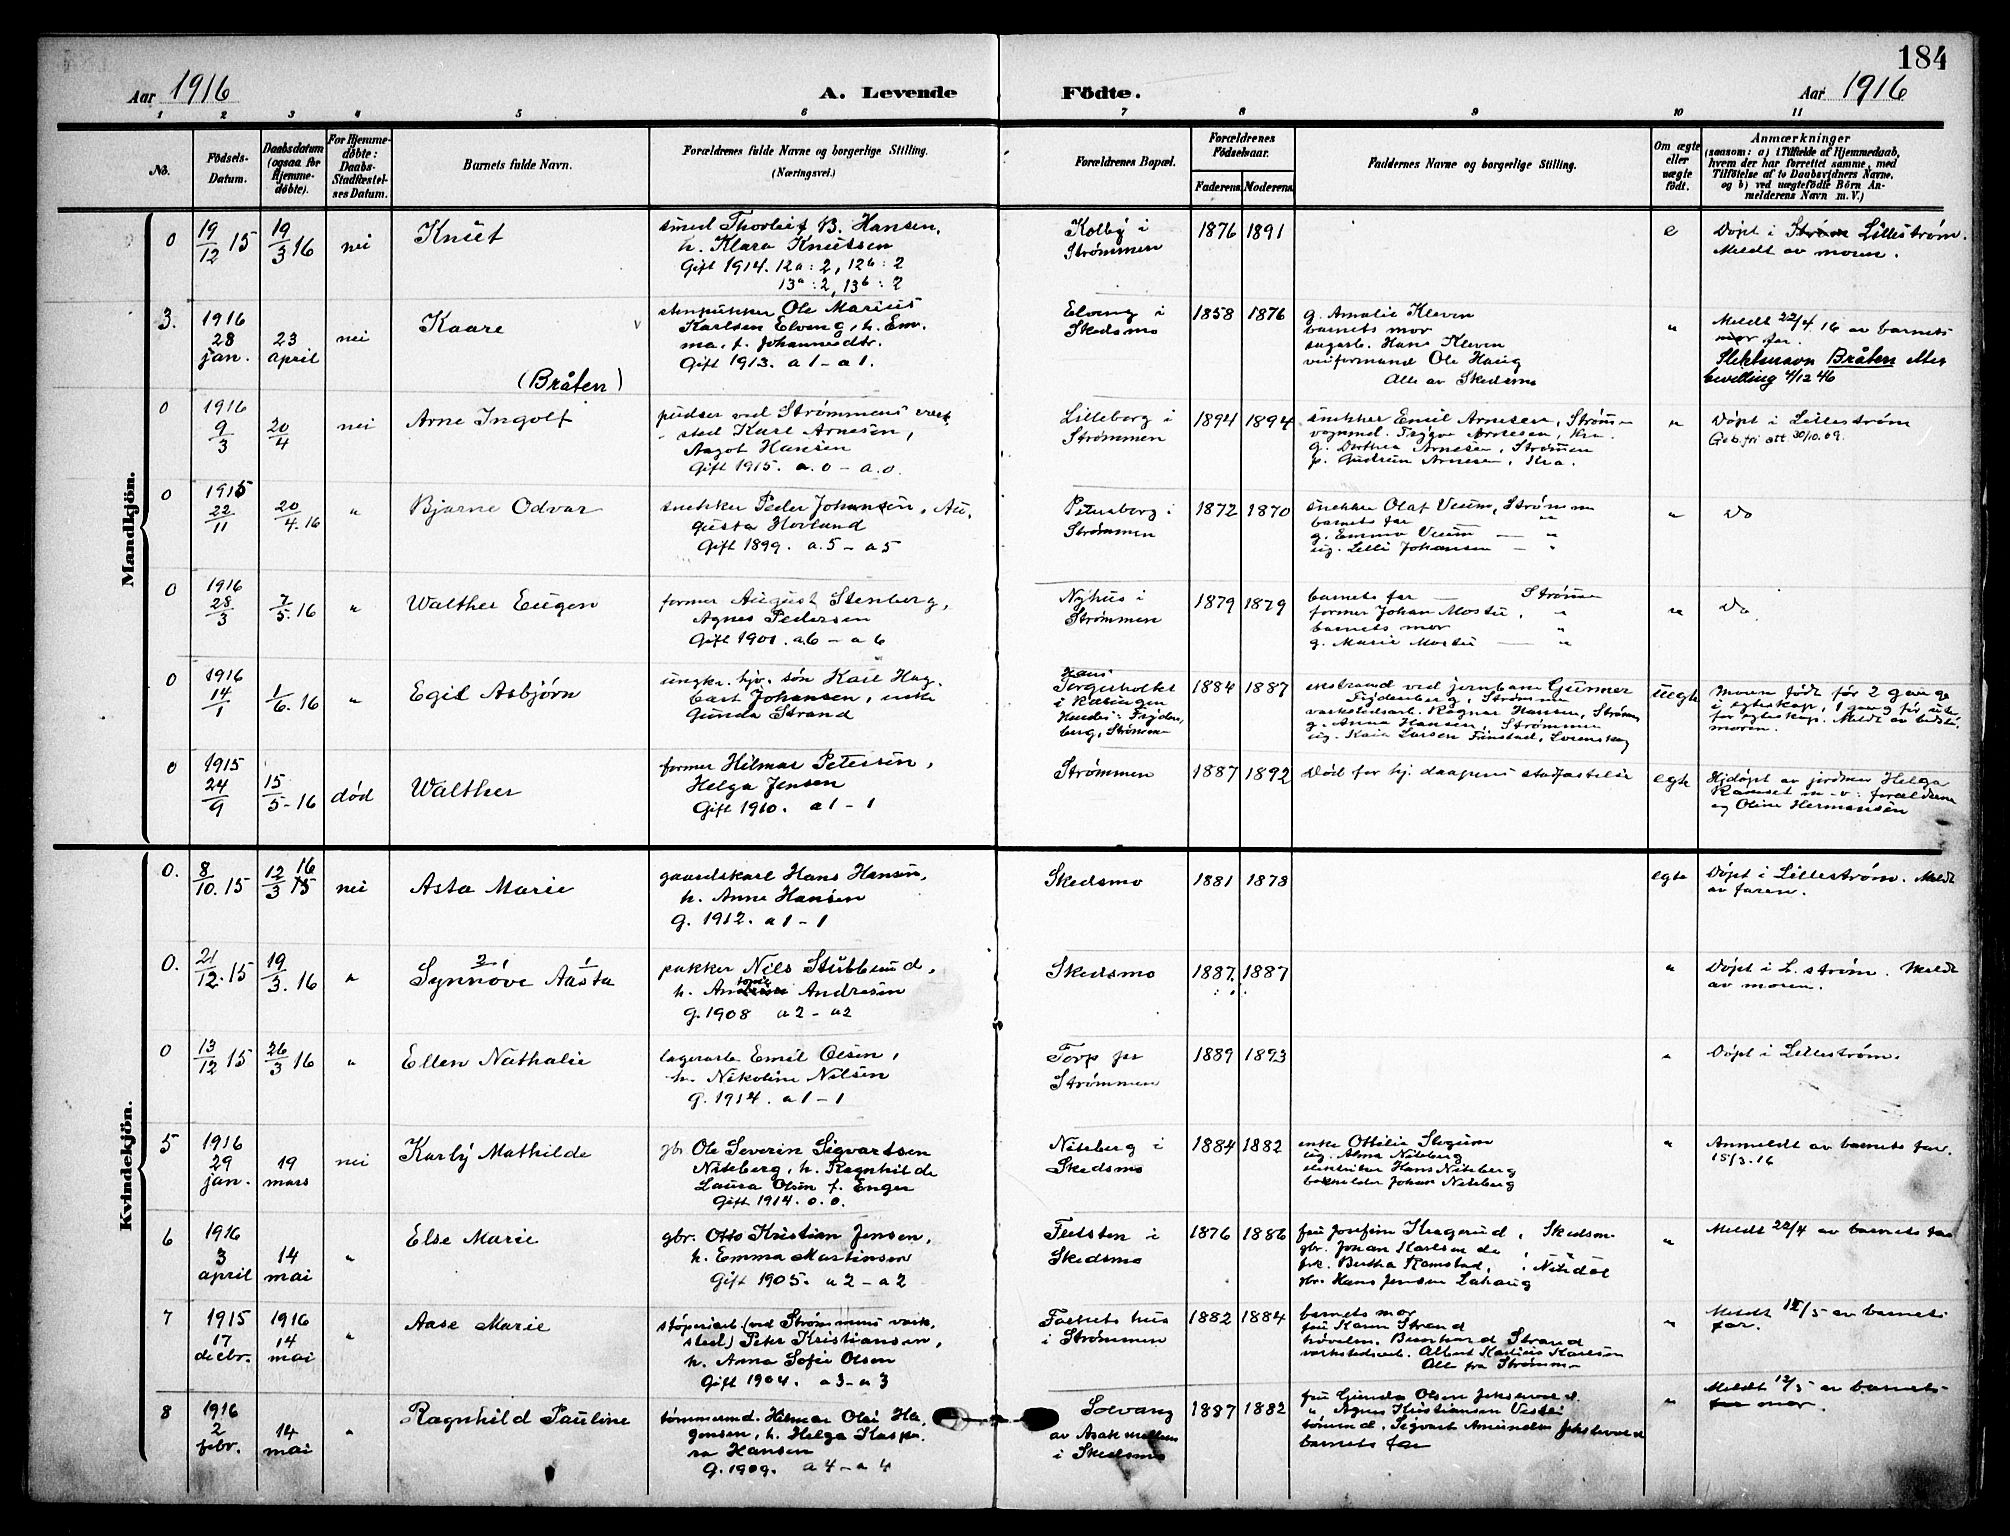 184
Aar 1916
A. Levende
Födte.
Aar 1916
1 2 3 4 5 6 7 8 9 10 11
No.
Födsels-Datum.
Daabsdatum (ogsaa for Hjemmedöbte).
For Hjemmedöbte: Daabs-Stadfæstelses Datum.
Barnets fulde Navn.
Forældrenes fulde Navne og borgerlige Stilling.
(Næringsvei.)
Forældrenes Bopæl.
Forældrenes Födselsaar.
Faderens Moderens
Faddernes Navne og borgerlige Stilling.
Om ægte eller uægte födt.
Anmærkninger
(saasom: a) i Tilfælde af Hjemmedaab,
hvem der har forrettet samme, med
Tilföielse af to Daabsvidners Navne,
og b) ved uægtefödte Börn Anmelderens Navn m. V.)
Mandkjön.
0 19/12 15 19/3 16 nei Knut
smed Thorleif B. Hansen,
h. Klara Knutssen
Gift 1914. 12a: 2, 12b: 2
13a: 2, 13b: 2
Kolby i
Strømmen
1876 1891
e
Døpt i Lillestrøm.
Meldt av moren.
3. 1916 28 jan. 23 april nei Kaare
(Bråten)
stenpukker Ole Marius
Karlsen Elveng, h. Emma, f. Johannesdtr.
Gift 1913. a 1 – a 1.
Elveng i
Skedsmo
1858 1876
g. Amalie Kleven
barnets mor
sagarb. Hans Kleven
veiformand Ole Haug
Alle av Skedsmo
"
Meldt 22/4 16 av barnets
mor far.
Slektsnavn Bråten efter
bevilling 4/12 46
0 1916 9/3 20/4 nei Arne Ingolf
pudser ved Strømmens verksted Karl Arnesen,
Aagot Hansen
Gift 1915. a.0 – a.0.
Lilleborg i
Strømmen
1894 1894
snekker Emil Arnesen, Strømn
vognmd. Trygve Arnesen, Kra.
g. Dorthea Arnesen, Strømmen
p. Gudrun Arnesen, Kra.
"
Døpt i Lillestrøm
Geb.fri att 30/10.69.
0 1915 22/11 20/4.16 " Bjarne Odvar
snekker Peder Johansen, Augusta Hovland
Gift 1899. a.5 – a 5
Petersborg i
Strømmen
1872 1870
snekker Olaf Veum, Strømmen
barnets far "
g. Emma Veum — "
ug. Lilli Johansen — "
"
Do
0 1916 28/3 7/5.16 " Walther Eugen
former August Stenberg,
Agnes Pedersen
Gift 1901. a.6 – a 6
Nyhus i
Strømmen
1879 1879
barnets far — Strømn
former Johan Mostu, "
barnets mor "
g. Marie Mostu — "
"
Do
0 1916 14/1 1/6.16 " Egil Asbjørn
ungkr. hjv. søn Karl Hagbart Johansen, enke
Gunda Strand
Hans:
Torgersholtet
i Rælingen
Hendes: Frydenberg, Strømmen
1884 1887
Frydenberg, Strømmen
verkstedsarb. Ragnar Hansen, Strømn
g. Anna Hansen, Strømmen
ug. Kaia Larsen Finstad, Lørenskog
uegte
Moren født før 2 gange
i egteskap, 1 gang før utenfor egteskap. Meldt av bedstemoren.
0 1915 24/9 15/5-16 død Walther
former Hilmar Petersen,
Helga Jensen
Gift 1910. a 1 – 1
Strømmen
1887 1892
Død før hj. daapens stadfæstelse
egte
Hjdøpt av jordmor Helga
Ramset m–v: forældrene
og Oline Hermansen
Kvindekjön.
0. 8/10.15 12/3 16 nei Asta Marie
gaardskarl Hans Hansen,
h. Anne Hansen
g. 1912. a 1 – 1
Skedsmo
1881 1873
egte
Døpt i Lillestrøm. Meldt
av faren.
0. 21/12.15 19/3.16 " Synnøve Aasta
2 1
pukker Nils Stubberud,
h. Andresen
g. 1908 a 2 – a2
Skedsmo
1887 1887
"
Døpt i L.strøm. Meldt
av moren.
0 13/12 15 26/3 16 " Ellen Nathalie
lagerarb. Emil Olsen,
h. Nikoline Nilsen
g. 1914. a 1 – 1
Torp pr
Strømmen
1889 1893
"
Døpt i Lillestrøm.
5 1916 29 jan. 19 mars nei Karby Mathilde
gbr Ole Severin Sigvartsen
Niteberg, h. Ragnhilde
Laura Olsen f. Enger
Gift 1914. 0. 0.
Niteberg i
Skedsmo
1884 1882
enke Ottilie Slogum
ug. Alma Niteberg
elektriker Hans Niteberg
bokholder Johan Niteberg
"
Anmeldt av barnets far.
15/3.16
6 1916 3 april 14 mai " Else Marie
gbr. Otto Kristian Jensen,
h. Emma Martinsen
Gift 1905. a 2 – a 2
Fledsten i
Skedsmo
1876 1886
fru Josefine Skogerud, Skedsmo
gbr. Johan Karlsen do
frk. Bertha Ramstad, Nitedal
gbr. Hans Jensen Lahaug
"
Meldt 22/4 av barnets far
7 1915 17 decbr. 1916 14 mai " Aase Marie
støperiarb. (ved Strømmens verksted) Peter Kristiansen,
h. Anna Sofie Olsen
Gift 1904. a 3 – a 3
Folkets hus
i Strømmen
1882 1884
barnets mor
fru Karen Strand
høvelm. Bernhard Strand
verkstedsarb. Albert Karlsen
Alle fra Strømm–
"
Meldt 12/5 av barnets
far.
8 1916 2 febr. 14 mai " Ragnhild Pauline
tømmermd. Hilmar Olai Hagensen, h. Helga Kaspara Hansen
g. 1909. a 4 – a 4
Solvang
av Asak mellem
i Skedsmo
1887 1882
fru Gunda Olsen Jeksterud.
" Agnes Kristiansen
tømmermd. Sigvart Amundsen Jeksterud
barnets far
"
Meldt 12/5 av barnets
far mor.